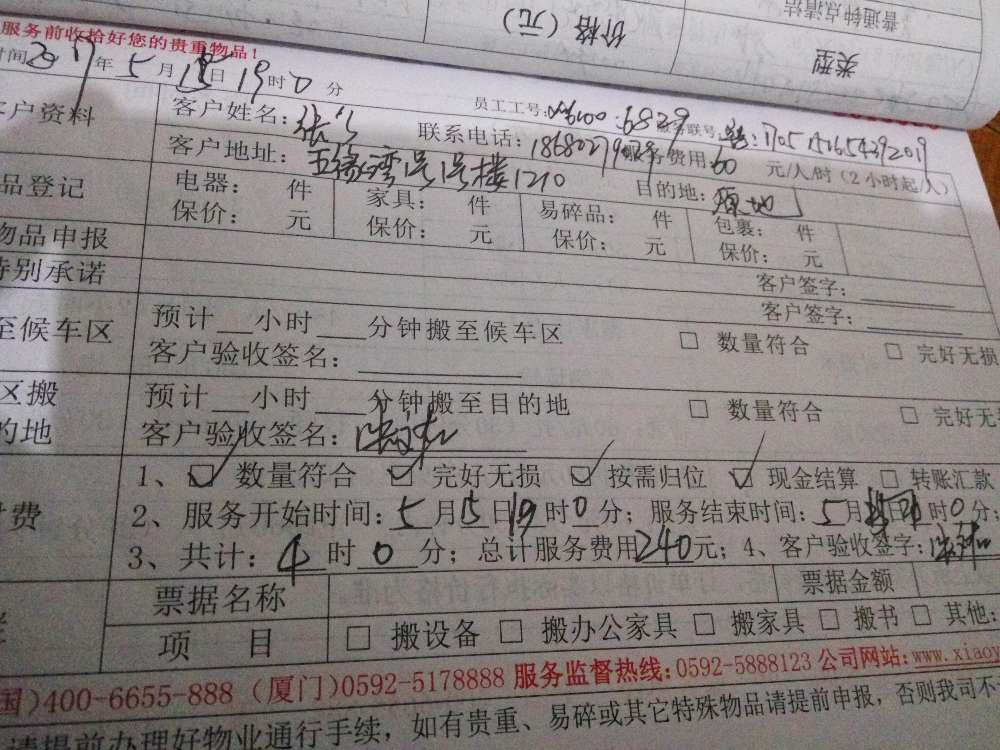 价格（元）
普通钟点清洁
类型
服务前收拾好您的贵重物品！
时间2017年5月15日19时0分
员工工号：
客户资料
客户姓名：张
联系电话：
服务费用60元/人/时（2小时起/人）
客户地址：五缘湾1号1号楼1210
目的地：原地
品登记
电器： 件 家具： 件 易碎品： 件 包裹： 件
保价： 元 保价： 元 保价： 元 保价： 元
物品申报
客户签字：
特别承诺
客户签字：
至候车区
预计 小时 分钟搬至候车区 □ 数量符合 □ 完好无损
客户验收签名：
区搬
的地
预计 小时 分钟搬至目的地 □ 数量符合 □ 完好无
客户验收签名：
付费
1、☑ 数量符合 ☑ 完好无损 ☑ 按需归位 ☑ 现金结算 □ 转账汇款
2、服务开始时间：5月15日19时0分；服务结束时间：5月 日 时0分；
3、共计：4时0分；总计服务费用240元；4、客户验收签字：
票据名称 票据金额
项 目 □ 搬设备 □ 搬办公家具 □ 搬家具 □ 搬书 □ 其他：
国）400-6655-888（厦门）0592-5178888 服务监督热线：0592-5888123 公司网站：www.xiaoy
请提前办理好物业通行手续，如有贵重、易碎或其它特殊物品请提前申报，否则我司不